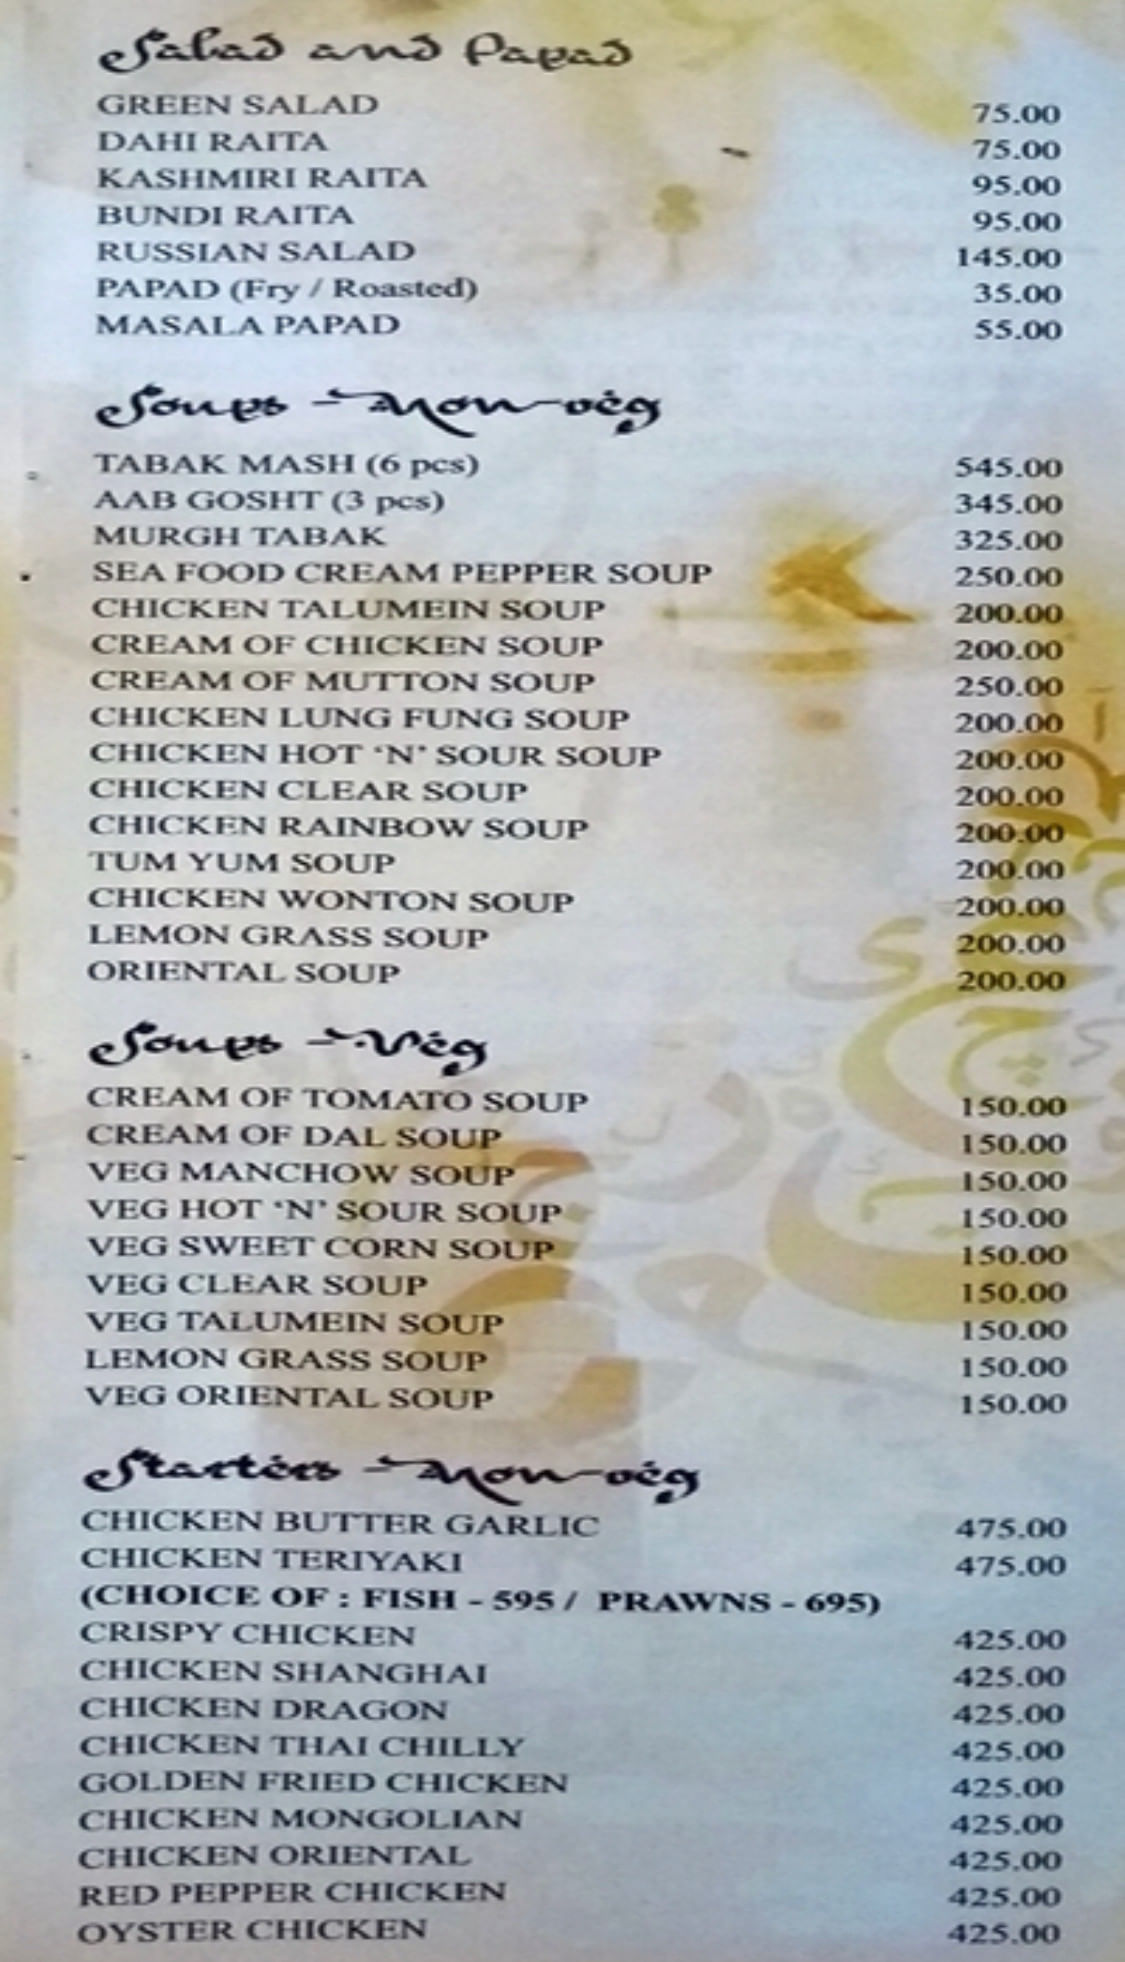 Salad and Papad
GREEN SALAD 75.00
DAHI RAITA 75.00
KASHMIRI RAITA 95.00
BUNDI RAITA 95.00
RUSSIAN SALAD 145.00
PAPAD (Fry / Roasted) 35.00
MASALA PAPAD 55.00
Soups - Non-veg
TABAK MASH (6 pcs) 545.00
AAB GOSHT (3 pcs) 345.00
MURGH TABAK 325.00
SEA FOOD CREAM PEPPER SOUP 250.00
CHICKEN TALUMEIN SOUP 200.00
CREAM OF CHICKEN SOUP 200.00
CREAM OF MUTTON SOUP 250.00
CHICKEN LUNG FUNG SOUP 200.00
CHICKEN HOT ‘N’ SOUR SOUP 200.00
CHICKEN CLEAR SOUP 200.00
CHICKEN RAINBOW SOUP 200.00
TUM YUM SOUP 200.00
CHICKEN WONTON SOUP 200.00
LEMON GRASS SOUP 200.00
ORIENTAL SOUP 200.00
Soups - Veg
CREAM OF TOMATO SOUP 150.00
CREAM OF DAL SOUP 150.00
VEG MANCHOW SOUP 150.00
VEG HOT ‘N’ SOUR SOUP 150.00
VEG SWEET CORN SOUP 150.00
VEG CLEAR SOUP 150.00
VEG TALUMEIN SOUP 150.00
LEMON GRASS SOUP 150.00
VEG ORIENTAL SOUP 150.00
Starters - Non-veg
CHICKEN BUTTER GARLIC 475.00
CHICKEN TERIYAKI 475.00
(CHOICE OF : FISH - 595 / PRAWNS - 695)
CRISPY CHICKEN 425.00
CHICKEN SHANGHAI 425.00
CHICKEN DRAGON 425.00
CHICKEN THAI CHILLY 425.00
GOLDEN FRIED CHICKEN 425.00
CHICKEN MONGOLIAN 425.00
CHICKEN ORIENTAL 425.00
RED PEPPER CHICKEN 425.00
OYSTER CHICKEN 425.00